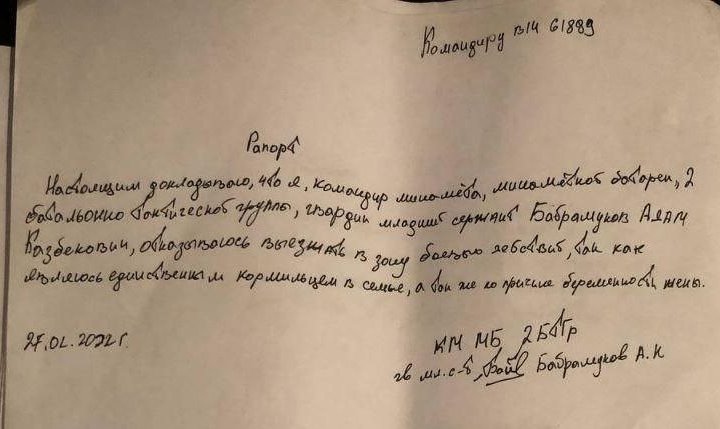 Командиру в/ч 61889
Рапорт
Настоящим докладываю, что я, командир миномёта, миномётной батареи, 2
батальонно тактической группы, гвардии младший сержант Бабрамуков Адам
Казбекович, отказываюсь выезжать в зону боевых действий, так как
являюсь единственным кормильцем в семье, а так же по причине беременности жены.
27.02.2022г.
КМ МБ 2БТГр
гв мл. с-т Бабрамуков А.К